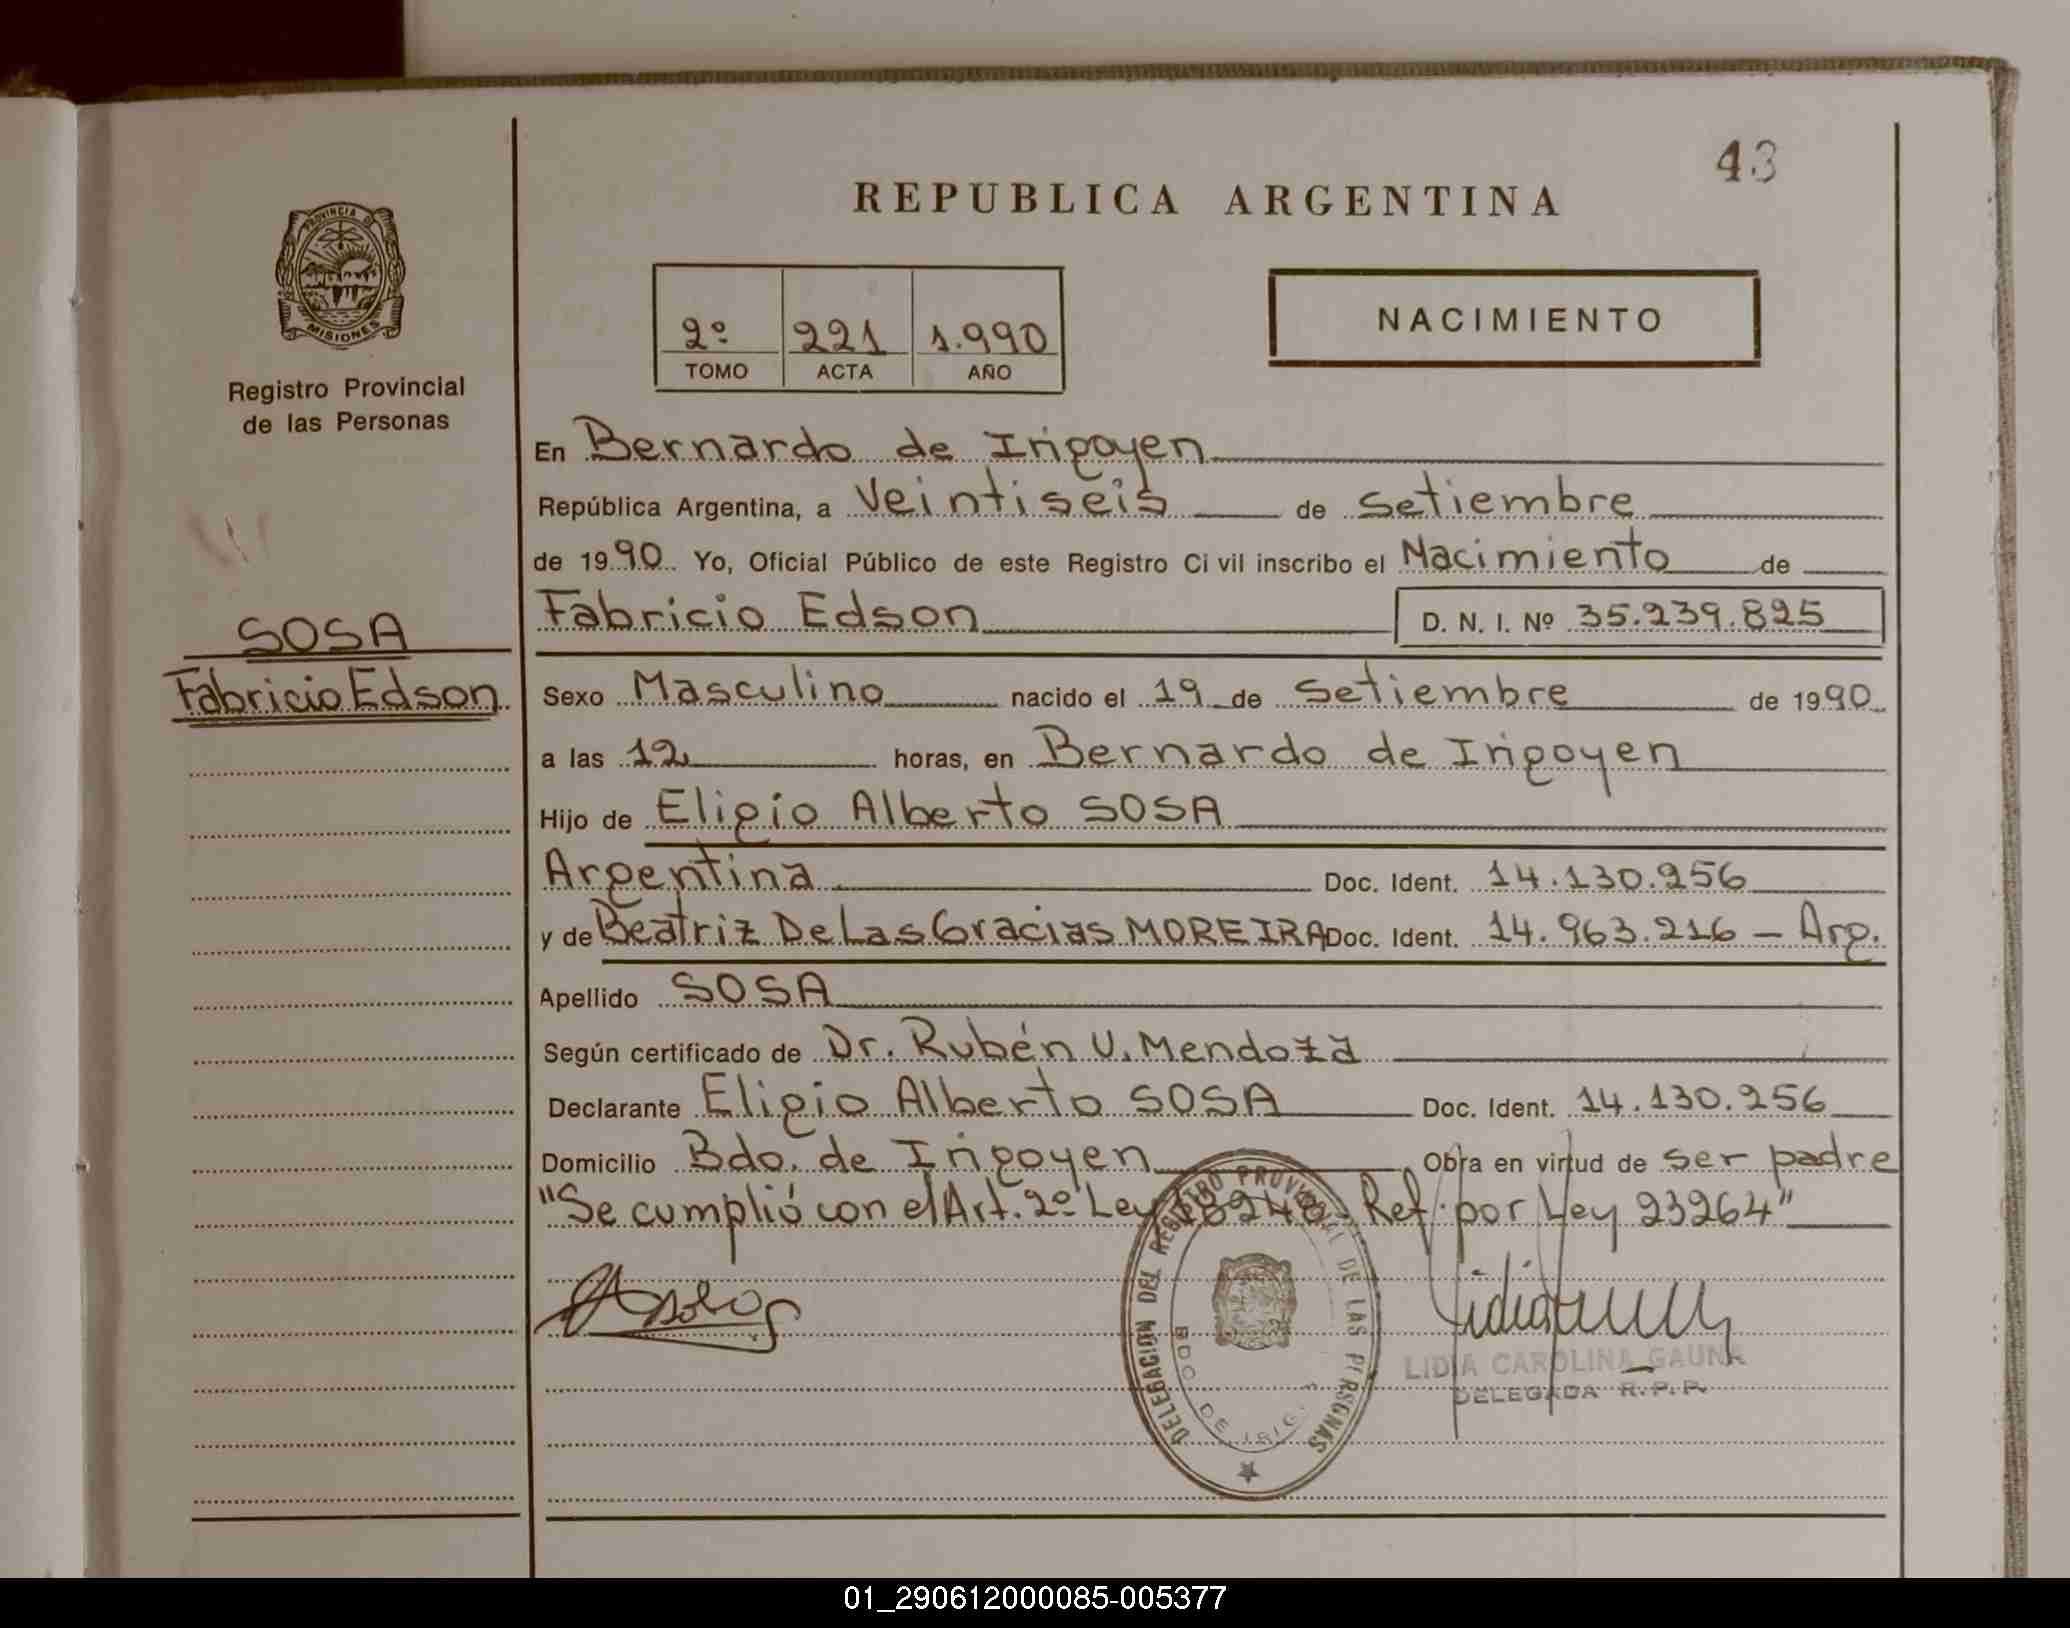 43
REPUBLICA ARGENTINA
PROVINCIA D
MISIONES
Registro Provincial
de las Personas
2º 221 1.990
TOMO ACTA AÑO
NACIMIENTO
En Bernardo de Irigoyen
República Argentina, a Veintiseis de Setiembre
de 1990. Yo, Oficial Público de este Registro Ci vil inscribo el Nacimiento de
Fabricio Edson D. N. I. Nº 35.239.825
SOSA
Fabricio Edson
Sexo Masculino nacido el 19 de Setiembre de 1990
a las 12 horas, en Bernardo de Irigoyen
Hijo de Eligio Alberto SOSA
Argentina Doc. Ident. 14.130.256
y de Beatriz De Las Gracias MOREIRA Doc. Ident. 14.963.216 - Arg.
Apellido SOSA
Según certificado de Dr. Rubén U. Mendoza
Declarante Eligio Alberto SOSA Doc. Ident. 14.130.256
Domicilio Bdo. de Irigoyen Obra en virtud de ser padre
"Se cumplió con el Art. 2º Ley 18248. Ref. por Ley 23264"
DELEGACION DEL REGISTRO PROVINCIAL DE LAS PERSONAS
BDO DE IRIG
LIDIA CAROLINA GAUNA
DELEGADA R.P.P.
01_290612000085-005377